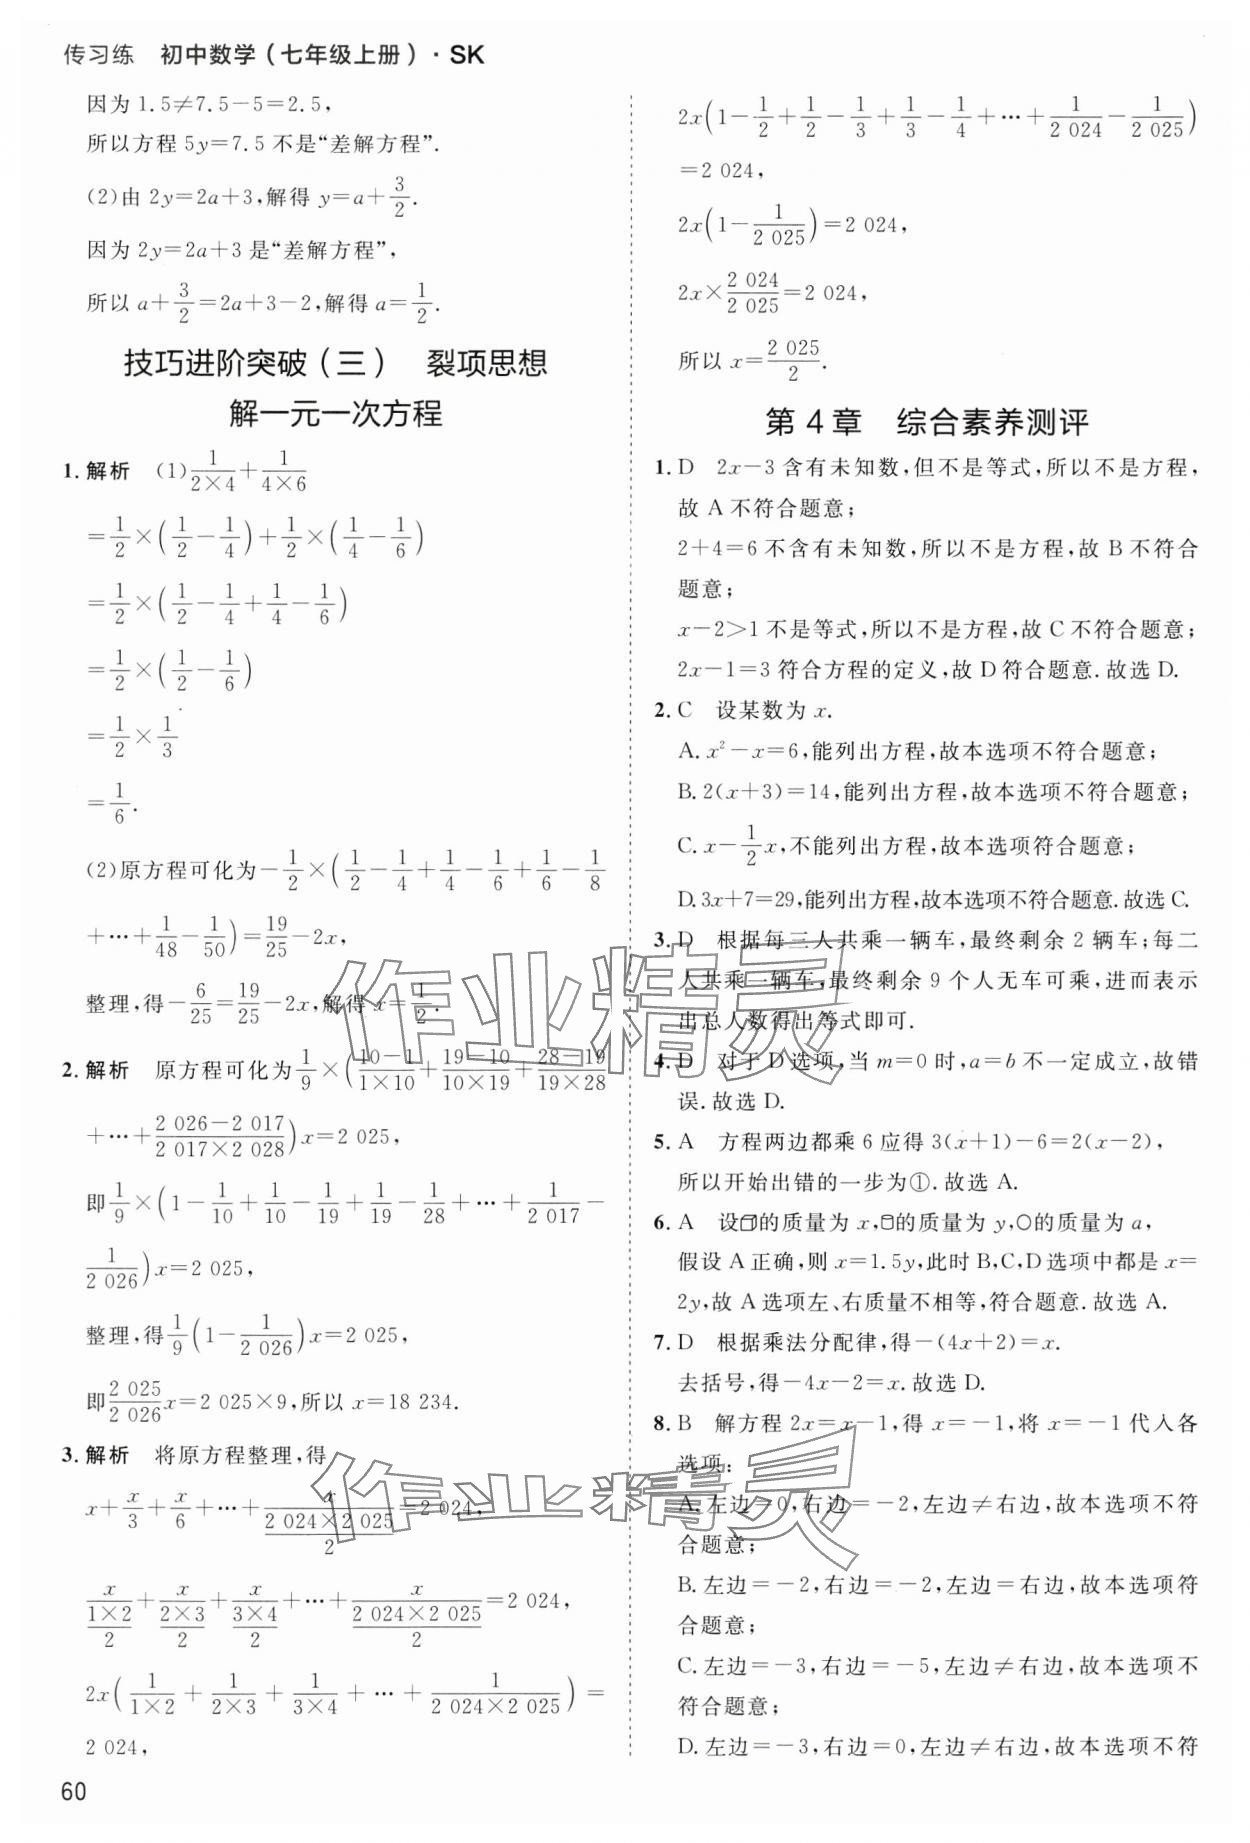 传习练　初中数学（七年级上册）· SK
因为 1.5≠7.5－5＝2.5，
所以方程 5y＝7.5 不是“差解方程”.
(2)由 2y＝2a＋3，解得 y＝a＋3/2.
因为 2y＝2a＋3 是“差解方程”，
所以 a＋3/2＝2a＋3－2，解得 a＝1/2.
技巧进阶突破（三）　裂项思想
解一元一次方程
1. 解析　(1)1/(2×4)＋1/(4×6)
＝1/2×(1/2－1/4)＋1/2×(1/4－1/6)
＝1/2×(1/2－1/4＋1/4－1/6)
＝1/2×(1/2－1/6)
＝1/2×1/3
＝1/6.
(2)原方程可化为－1/2×(1/2－1/4＋1/4－1/6＋1/6－1/8
＋…＋1/48－1/50)＝19/25－2x，
整理，得－6/25＝19/25－2x，解得 x＝1/2.
2. 解析　原方程可化为1/9×((10－1)/(1×10)＋(19－10)/(10×19)＋(28－19)/(19×28)
＋…＋(2 026－2 017)/(2 017×2 028))x＝2 025，
即1/9×(1－1/10＋1/10－1/19＋1/19－1/28＋…＋1/2 017－
1/2 026)x＝2 025，
整理，得1/9(1－1/2 026)x＝2 025，
即2 025/2 026x＝2 025×9，所以 x＝18 234.
3. 解析　将原方程整理，得
x＋x/3＋x/6＋…＋x/((2 024×2 025)/2)＝2 024，
x/((1×2)/2)＋x/((2×3)/2)＋x/((3×4)/2)＋…＋x/((2 024×2 025)/2)＝2 024，
2x(1/(1×2)＋1/(2×3)＋1/(3×4)＋…＋1/(2 024×2 025))＝
2 024，
2x(1－1/2＋1/2－1/3＋1/3－1/4＋…＋1/2 024－1/2 025)
＝2 024，
2x(1－1/2 025)＝2 024，
2x×2 024/2 025＝2 024，
所以 x＝2 025/2.
第 4 章　综合素养测评
1. D　2x－3 含有未知数，但不是等式，所以不是方程，
故 A 不符合题意；
2＋4＝6 不含有未知数，所以不是方程，故 B 不符合
题意；
x－2＞1 不是等式，所以不是方程，故 C 不符合题意；
2x－1＝3 符合方程的定义，故 D 符合题意.故选 D.
2. C　设某数为 x.
A. x²－x＝6，能列出方程，故本选项不符合题意；
B. 2(x＋3)＝14，能列出方程，故本选项不符合题意；
C. x－1/2x，不能列出方程，故本选项符合题意；
D. 3x＋7＝29，能列出方程，故本选项不符合题意.故选 C.
3. D　根据每三人共乘一辆车，最终剩余 2 辆车；每二
人共乘一辆车，最终剩余 9 个人无车可乘，进而表示
出总人数得出等式即可.
4. D　对于 D 选项，当 m＝0 时，a＝b 不一定成立，故错
误.故选 D.
5. A　方程两边都乘 6 应得 3(x＋1)－6＝2(x－2)，
所以开始出错的一步为①.故选 A.
6. A　设的质量为 x，的质量为 y，○的质量为 a，
假设 A 正确，则 x＝1.5y，此时 B，C，D 选项中都是 x＝
2y，故 A 选项左、右质量不相等，符合题意.故选 A.
7. D　根据乘法分配律，得－(4x＋2)＝x.
去括号，得－4x－2＝x.故选 D.
8. B　解方程 2x＝x－1，得 x＝－1，将 x＝－1 代入各
选项：
A. 左边＝0，右边＝－2，左边≠右边，故本选项不符
合题意；
B. 左边＝－2，右边＝－2，左边＝右边，故本选项符
合题意；
C. 左边＝－3，右边＝－5，左边≠右边，故本选项不
符合题意；
D. 左边＝－3，右边＝0，左边≠右边，故本选项不符
60
作业精灵
作业精灵